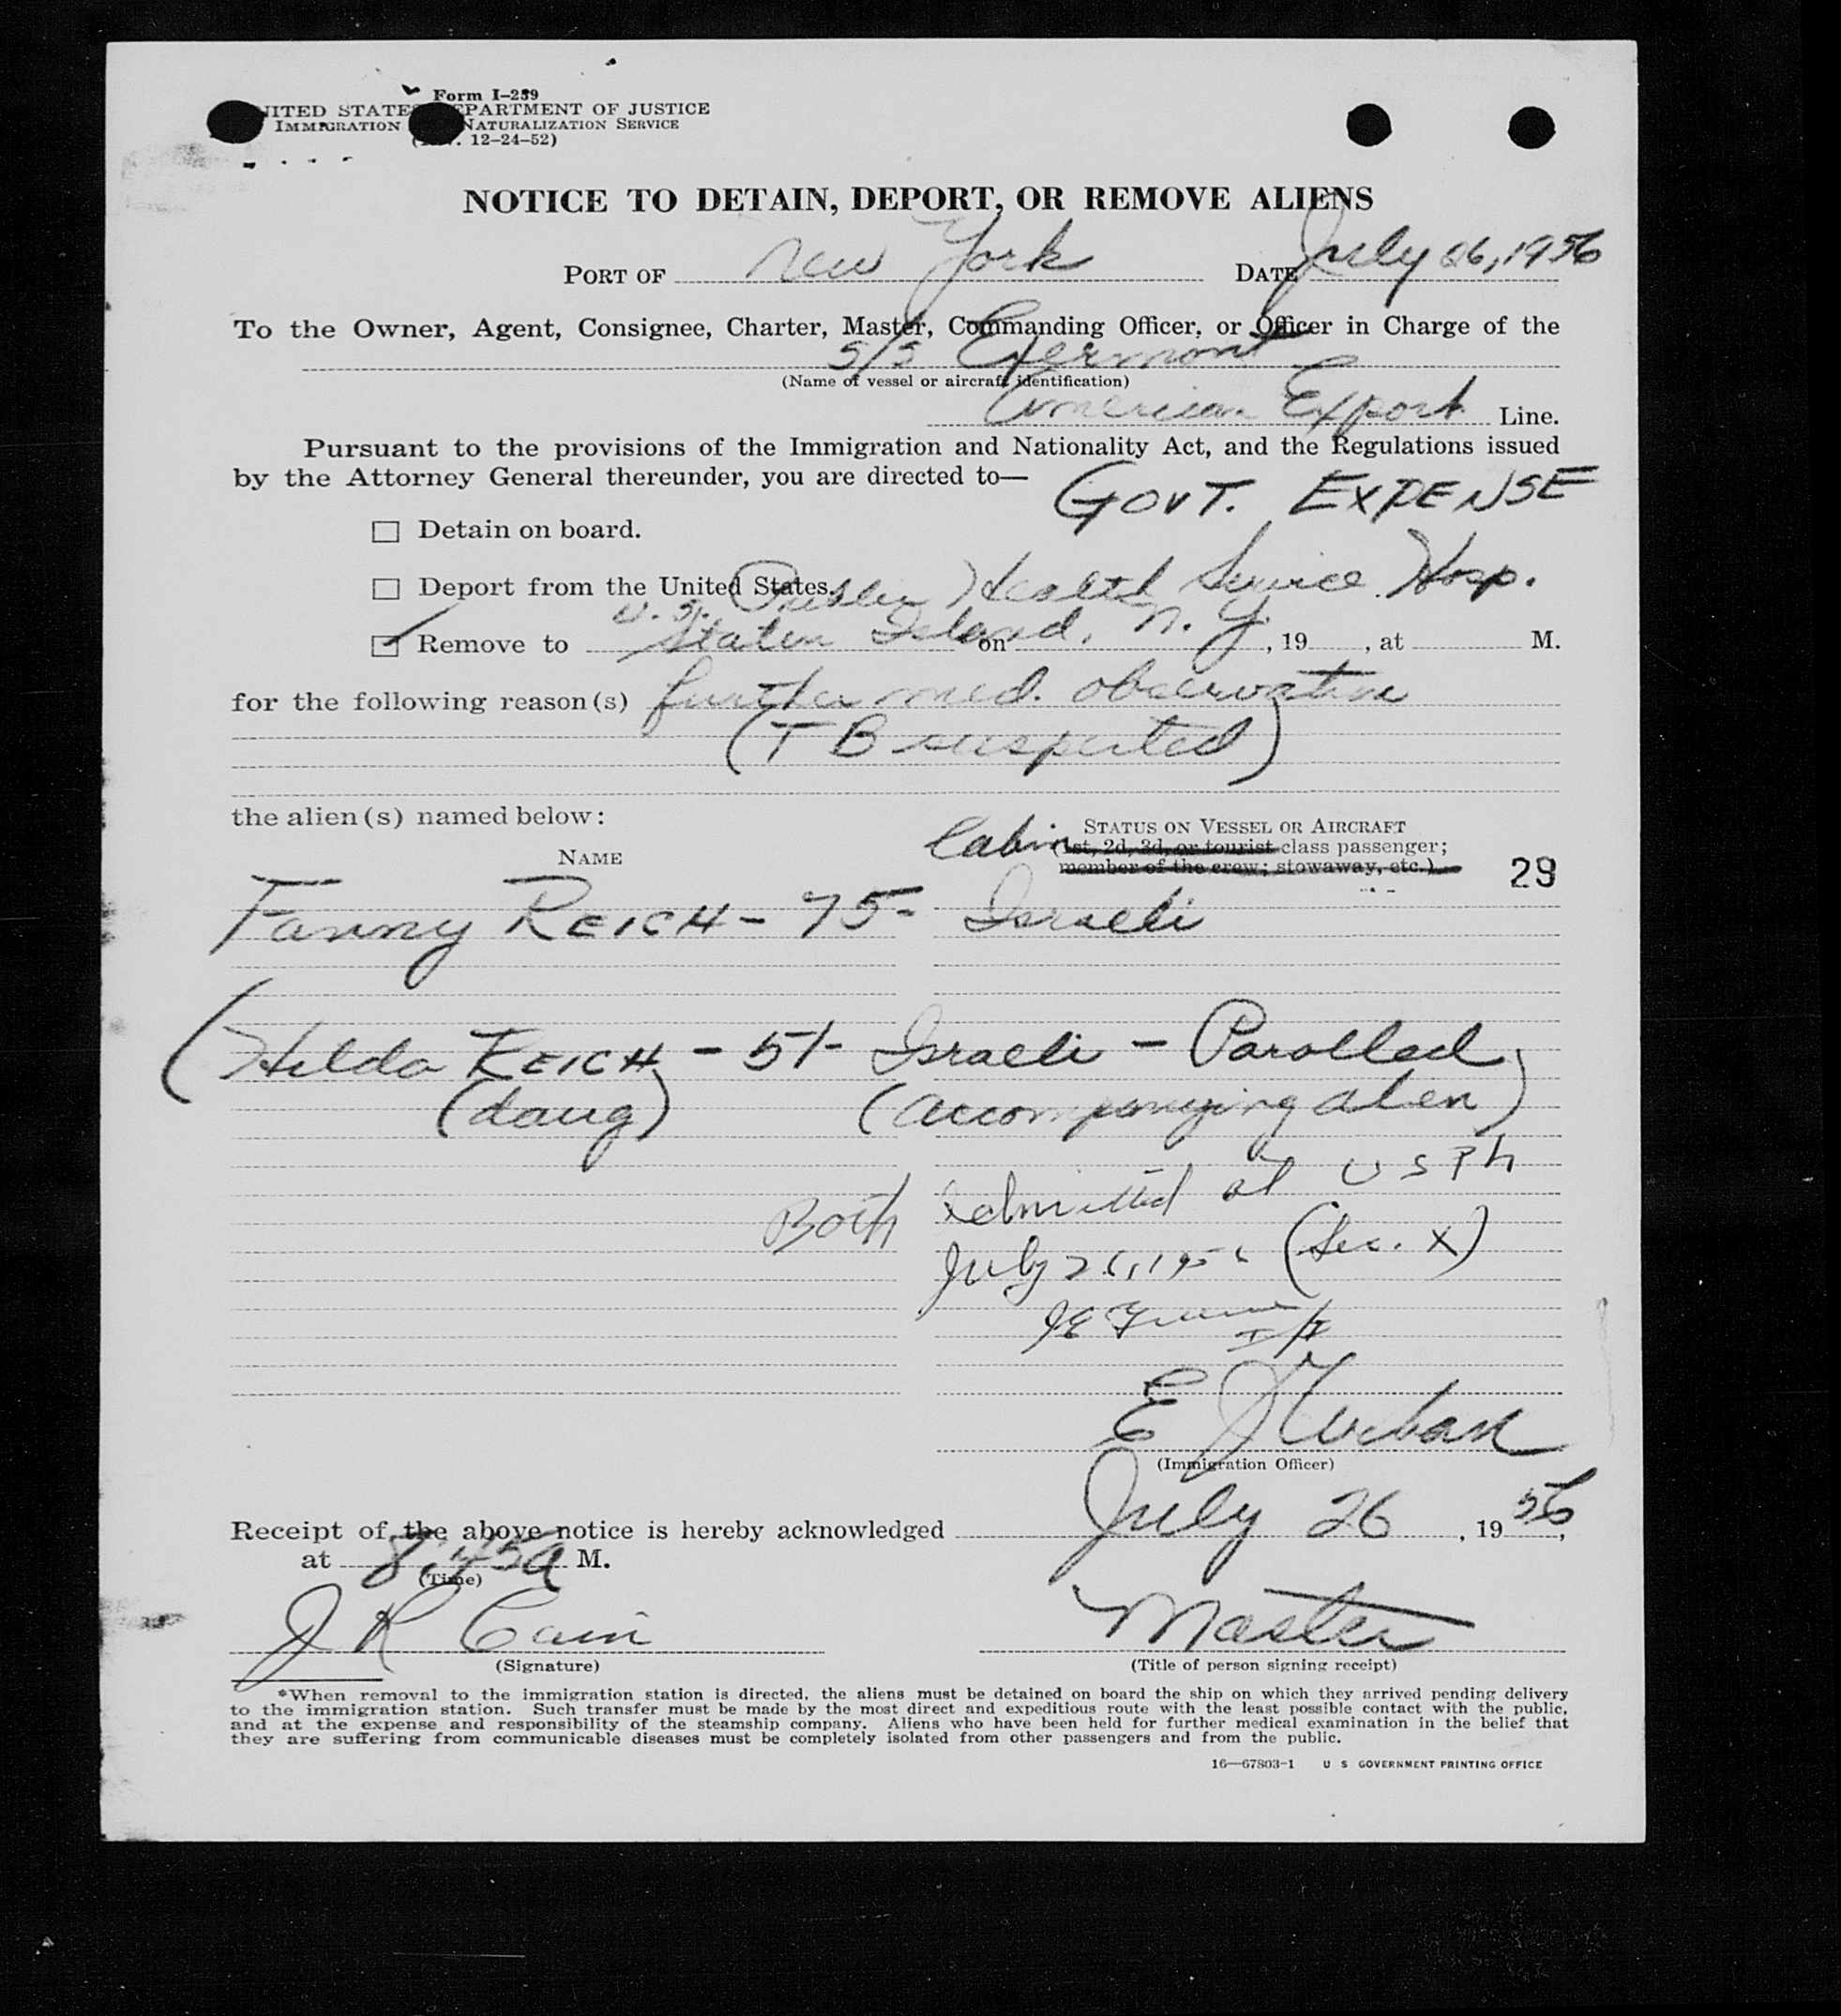 Form I-259
UNITED STATES DEPARTMENT OF JUSTICE
IMMIGRATION NATURALIZATION SERVICE
12-24-52)
NOTICE TO DETAIN, DEPORT, OR REMOVE ALIENS
PORT OF New York DATE July 26, 1956
To the Owner, Agent, Consignee, Charter, Master, Commanding Officer, or Officer in Charge of the
S/S Exermont
(Name of vessel or aircraft identification)
American Export Line.
Pursuant to the provisions of the Immigration and Nationality Act, and the Regulations issued
by the Attorney General thereunder, you are directed to—
GOVT. EXPENSE
☐ Detain on board.
☐ Deport from the United States.
U.S. Public Health Service Hosp.
☑ Remove to Staten Island, N.Y. on , 19 , at M.
for the following reason(s) further med. observation
(TB suspected)
the alien(s) named below:
STATUS ON VESSEL OR AIRCRAFT
Cabin (1st, 2d, 3d, or tourist class passenger;
NAME
member of the crew; stowaway, etc.)
29
Fanny REICH - 75 - Israeli
(Hilda REICH - 51- Israeli - Parolled
(daug) (accompanying alien)
Both admitted at USPH
July 26, 1956 (Sec. X)
E J Urban
(Immigration Officer)
Receipt of the above notice is hereby acknowledged July 26, 1956,
at 8:45A M.
(Time)
J R Cain Master
(Signature) (Title of person signing receipt)
*When removal to the immigration station is directed, the aliens must be detained on board the ship on which they arrived pending delivery
to the immigration station. Such transfer must be made by the most direct and expeditious route with the least possible contact with the public,
and at the expense and responsibility of the steamship company. Aliens who have been held for further medical examination in the belief that
they are suffering from communicable diseases must be completely isolated from other passengers and from the public.
16—67803-1 U S GOVERNMENT PRINTING OFFICE